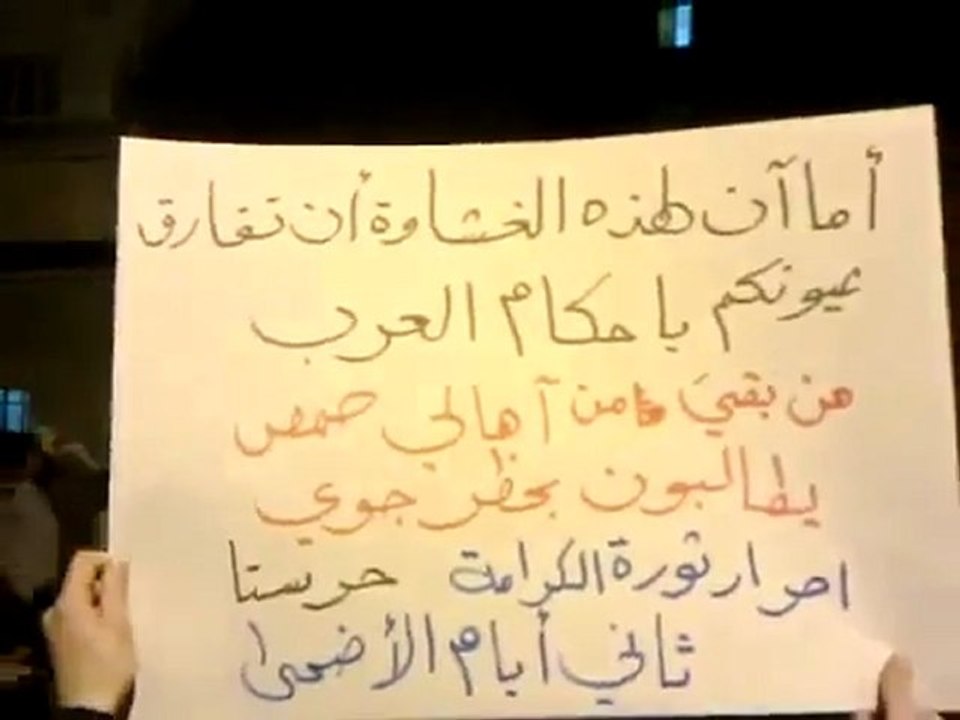 أما آن لهذه الغشاوة أن تفارق
عيونكم يا حكام العرب
من بقيَ من آهالي حمص
يطالبون بحظر جوي
احرار ثورة الكرامة حرستا
ثاني أيام الأضحى